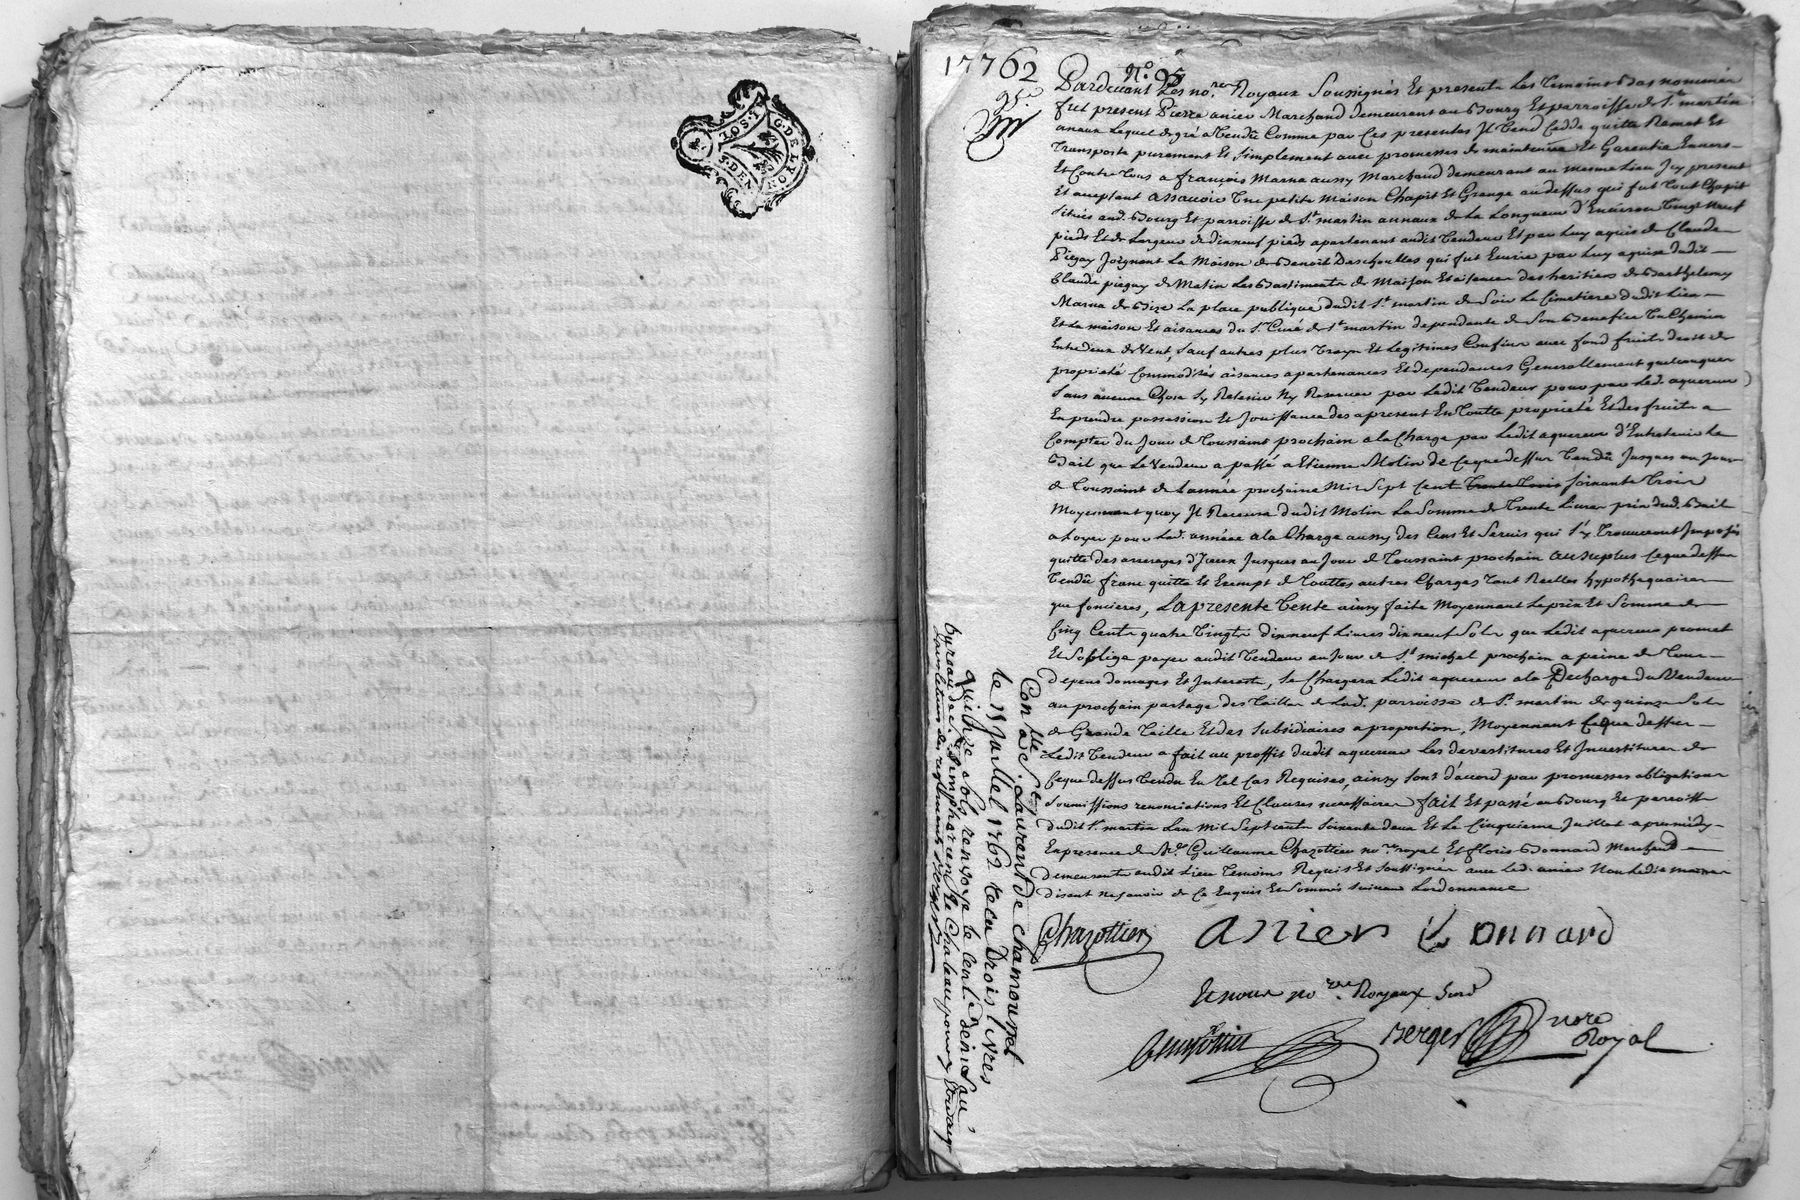 G. DE LYON
1 0 S. 1
S. DEN
17762
N.º 95
95.e
Pardevant Les no.res Royaux Soussignés Et presents Les Temoins Bas nommés
fut present Pierre anier Marchand demeurant au Bourg Et parroisse de S.t martin
anaux Lequel de gré a Vendû Comme par Ces presentes Il Vend Cedde quitte Remet Et
Transporte purement Et Simplement avec promesses de maintenüe Et Garentie Envers
Et Contre tous a françois Marna aussy Marchand demeurant au mesme Lieu Icy present
Et acceptant assavoir Une petite maison Chapit Et Grange au dessus qui fut tout Chapit
Situés aud. Bourg Et parroisse de S.t martin annaux de La Longueur d'Environ Vingt Neuf
pieds Et de Largeur de dixneuf pieds apartenant audit Vendeur Et par Luy aquis de Claude
Piegay Joignant La Maison de Benoit Deschelles qui fut Ecurie par Luy aquise dudit
Claude piegay de Matin Les Bastiments de Maison Et aisances des heritiers de Barthelemy
Marna de Bize La place publique dudit S.t martin de Soir Le Cimetiere dudit Lieu
Et La maison Et aisances du S.r Curé de S.t martin dependants de Son Benefice Un Chemin
Entredeux de Vent, Sauf autres plus Vrays Et Legitimes Confins avec fond fruits droits de
proprieté Commodités aisances apartenances Et dependances Generallement quelconques
Sans aucune Chose S'y Retenir Ny Reserver par Ledit Vendeur pour par Led. aquereur
En prendre possession Et Jouissance des apresent En toutte proprieté Et des fruits a
Compter du Jour de Toussaint prochain a la Charge par Ledit aquereur d'Entretenir Le
Bail que Le Vendeur a passé a Etienne Molin de Ceque dessus Vendû Jusques au Jour
de Toussaint de Lannée prochaine Mil Sept Cent Trente Trois Soixante Trois
Moyennant quoy Il Recevra dudit Molin La Somme de Trente Livres prix dud. Bail
a Loyer pour Lad. année a la Charge aussy des Cens Et Servis qui S'y Trouveront Imposés
quitte des arrerages d'Iceux Jusques au Jour de Toussaint prochain au Surplus Ceque dessus
Vendû franc quitte Et Exempt de Touttes autres Charges Tant Reelles hypothequaires
que foncieres, La presente Vente ainsy faite Moyennant Le prix Et Somme de
Cinq Cents quatre Vingts dixneuf Livres dixneuf Sols que Ledit aquereur promet
Et Soblige payer audit Vendeur au Jour de S.t michel prochain a peine de Tous
depens domages Et Interests, Se Chargera Ledit aquereur a la Decharge du Vendeur
au prochain partage des Tailles de Lad. parroisse de S.t martin de quinze Sols
de Grande Taille Et des Subsidiaires a proportion, Moyennant Ceque dessus
Ledit Vendeur a fait au proffit dudit aquereur Les devestitures Et Investitures de
Ceque dessus Vendu En Tel Cas Requises, ainsy Sont d'accord par promesses obligations
Soumissions renonciations Et Clauses necessaires fait Et passé au Bourg Et parroisse
dudit S.t martin Lan Mil Sept cents Soixante deux Et Le Cinquieme Juillet apremidy
En presence de M.e Guillaume Chazottier no.re royal Et floris Bonnard Marchand
demeurants audit Lieu Temoins Requis Et Soussignés avec Led. anier Non Ledit marna
disant ne Savoir de Ce Enquis Et Sommés Suivant Lordonnance
Chazottier anier Bonnard
Et nous no.res Royaux Sous.
Berger nore
Royal
Con.lle a S.t Laurant de chamousset
le 15 Juillel 1762 Recu Trois livres
quinze sols renvoye le cent. denier au
bureau de S. Simphorien le Chateau